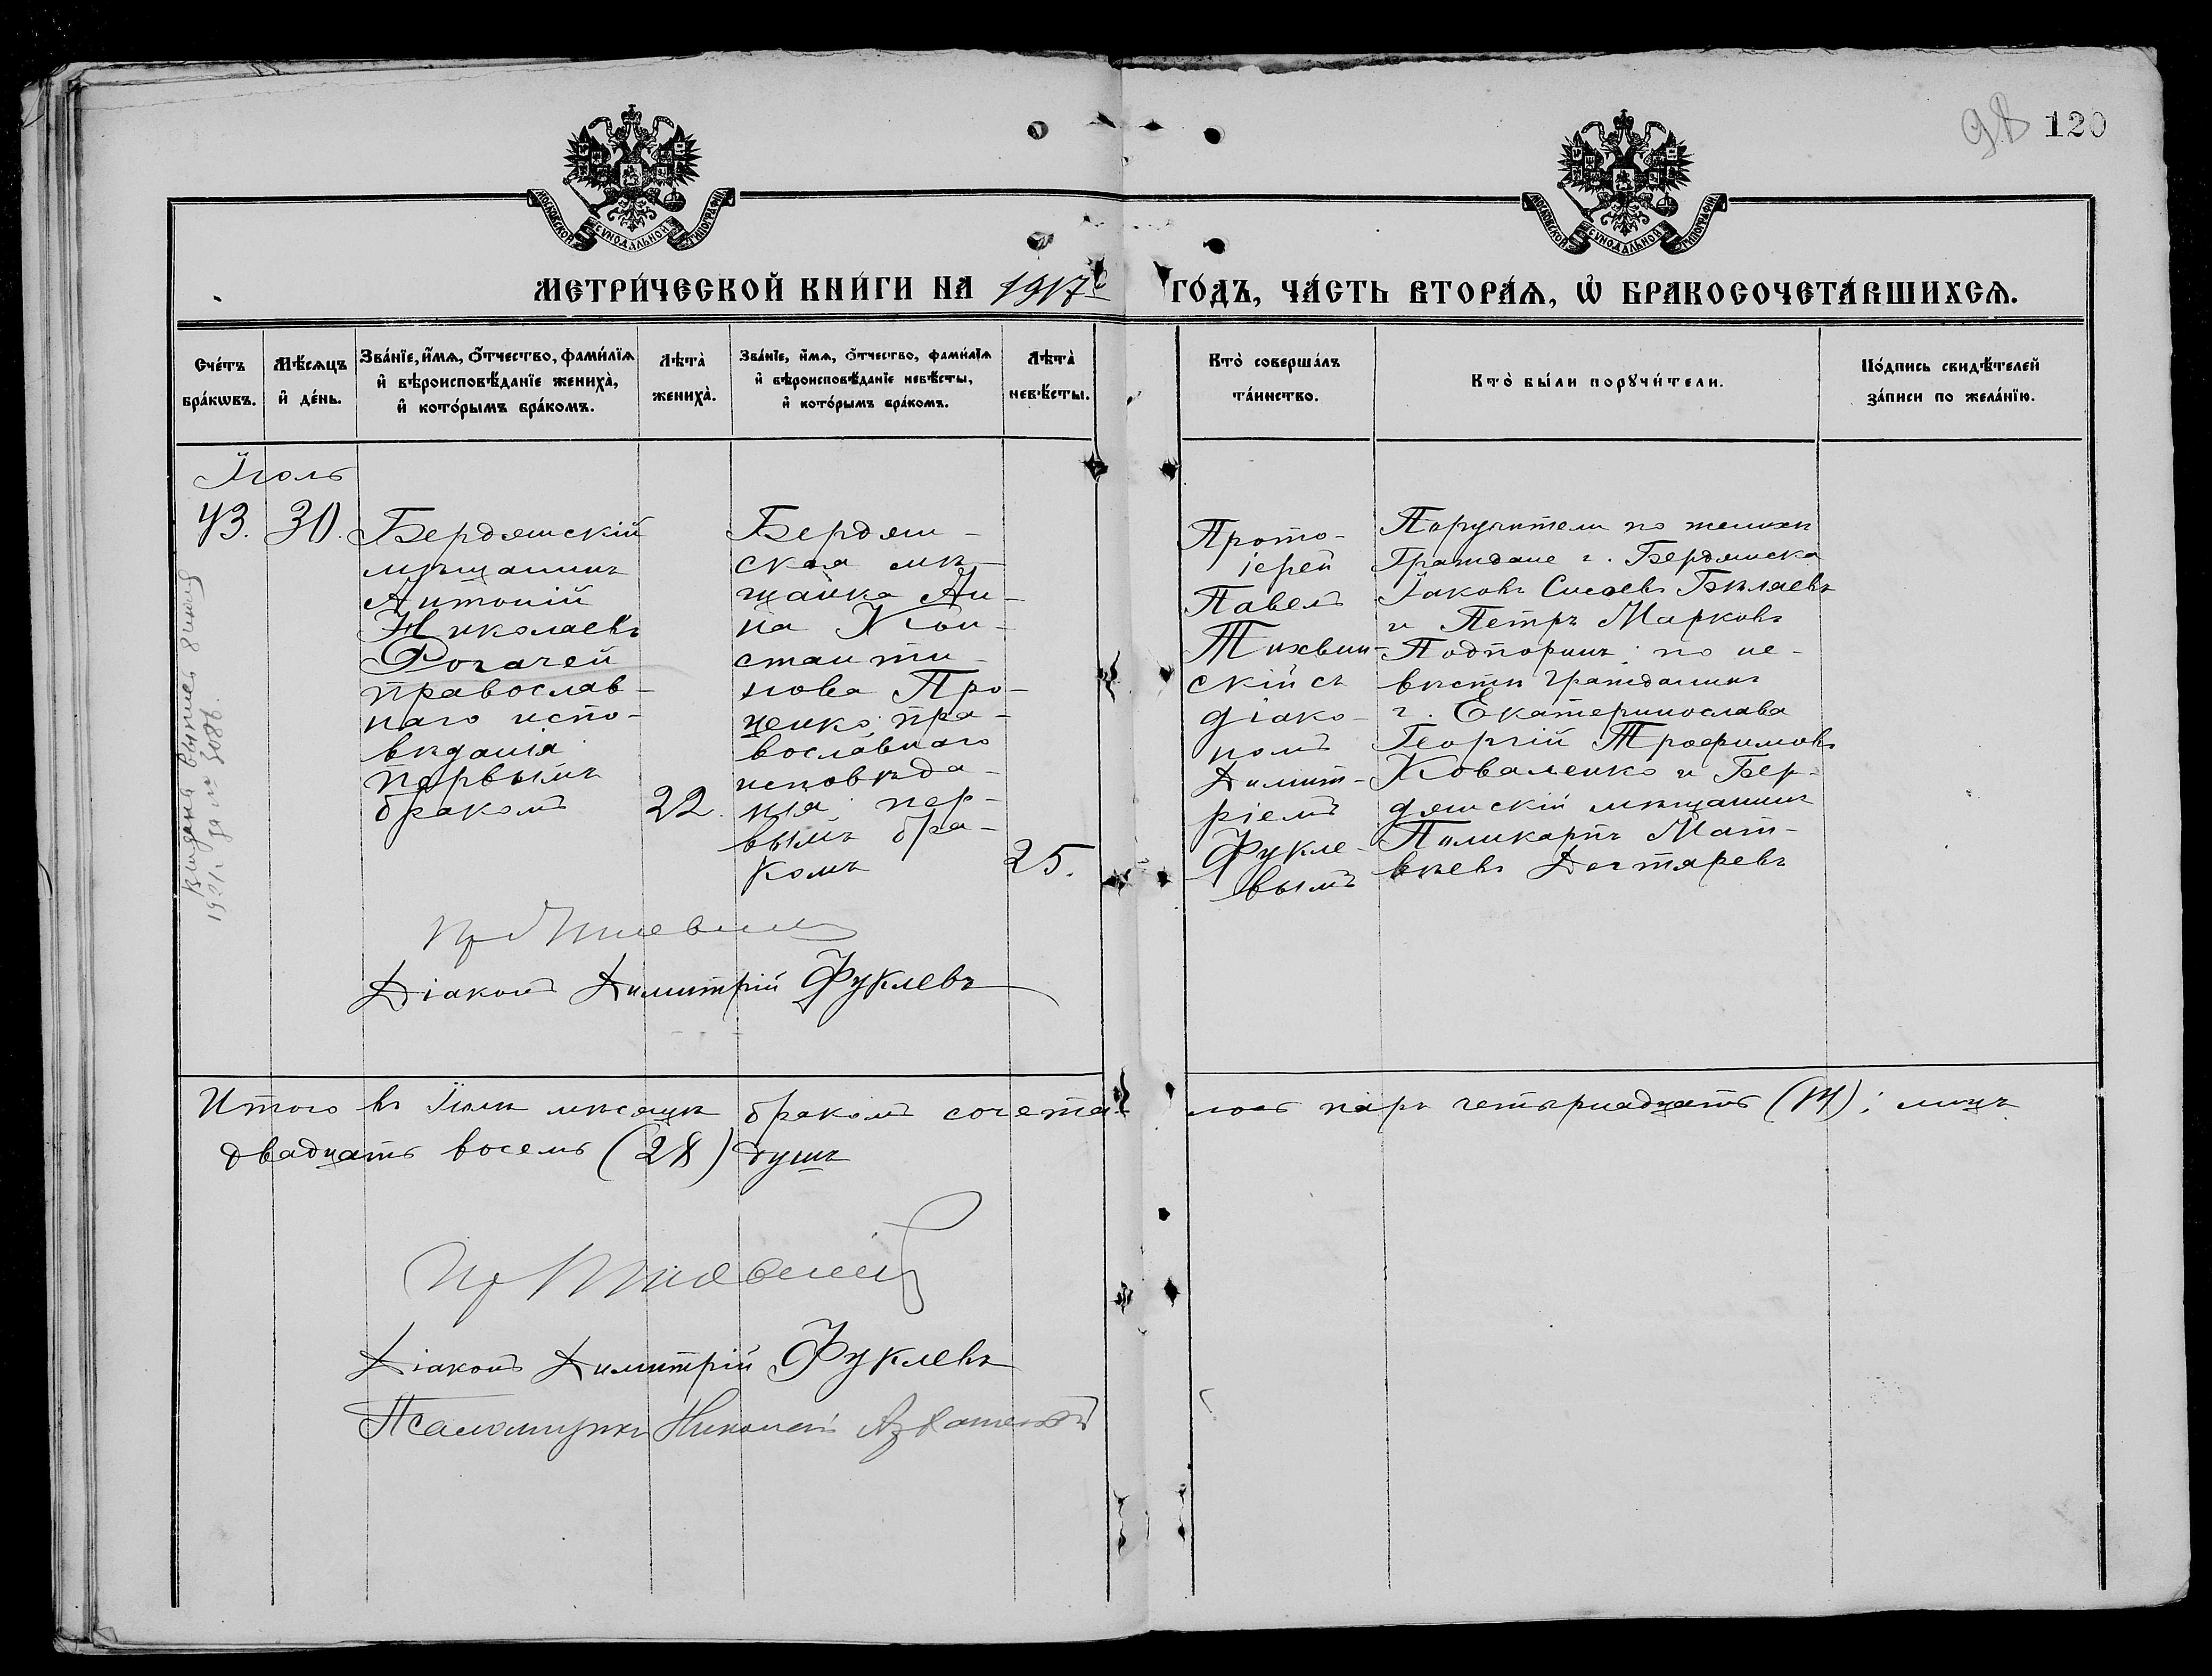 98 120
МОСКОВСКОЙ СѴНОДАЛЬНОЙ ТИПОГРАФІИ
МОСКОВСКОЙ СѴНОДАЛЬНОЙ ТИПОГРАФІИ
МЕТРИ́ЧЕСКОЙ КНИ́ГИ НА 1917й ГО́ДЪ, ЧА́СТЬ ВТОРА́Ѧ, Ѡ҆ БРАКОСОЧЕТА́ВШИХСѦ.
Сче́тъ
бра́кѡвъ.
Мѣ́сѧцъ
и҆ де́нь.
Зва́нїе, и҆́мѧ, ѻ҆́тчество, фами́лїѧ
и҆ вѣроисповѣ́данїе жениха̀,
и҆ кото́рымъ бра́комъ.
Лѣта̀
жениха̀.
Зва́нїе, и҆́мѧ, ѻ҆́тчество, фами́лїѧ
и҆ вѣроисповѣ́данїе невѣ́сты,
и҆ кото́рымъ бра́комъ.
Лѣта̀
невѣ́сты.
Кто̀ соверша́лъ
та́инство.
Кто̀ бы́ли порꙋчи́тели.
По́дпись свидѣ́телей
за́писи по жела́нїю.
Іюль
43. 30.
Бердянскій
мѣщанинъ
Антоній
Николаевъ
Рогачей
православ-
наго испо-
вѣданія
первымъ
бракомъ
22.
Бердян-
ская мѣ-
щанка Ан-
на Кон-
станти-
нова Про-
ценко пра-
вославнаго
исповѣда-
нія пер-
вымъ бра-
комъ
25.
Прото-
іерей
Павелъ
Тихвин-
скій съ
діако-
номъ
Димит-
ріемъ
Фукле-
вымъ
Поручители по женихѣ
Граждане г. Бердянска
Іаковъ Сисоевъ Бѣляевъ
и Петръ Марковъ
Подпоринъ; по не-
вѣстѣ гражданинъ
г. Екатеринослава
Георгій Трофимовъ
Коваленко и Бер-
дянскій мѣщанинъ
Поликарпъ Мат-
вѣевъ Дегтяревъ
Выдана выпись 8 июня
1921 г. за № 3086.
Діаконъ Димитрій Фуклевъ
Итого въ Іюлѣ мѣсяцѣ бракомъ сочета- лось паръ четырнадцать (14); лицъ
двадцать восемь (28) душъ
Діаконъ Димитрій Фуклевъ
Псаломщикъ Николай